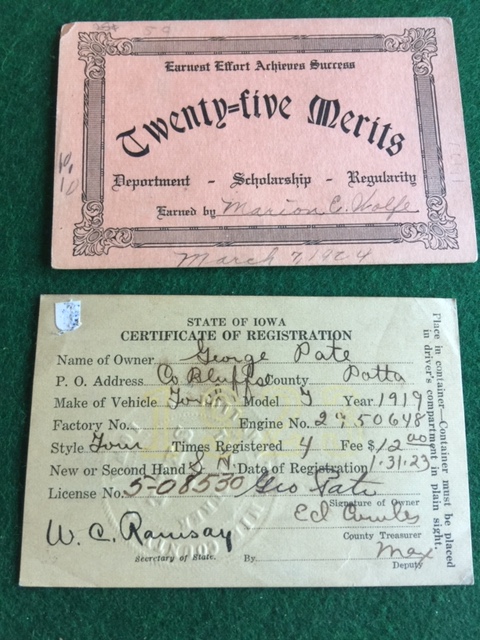 25¢ 59
Earnest Effort Achieves Success
Twenty=five Merits
Department - Scholarship - Regularity
Earned by Marion C. Wolfe
March 7, 1924
STATE OF IOWA
CERTIFICATE OF REGISTRATION
Name of Owner George Pate
P. O. Address Co Bluffs County Potta
Make of Vehicle Ford Model T Year 1919
Factory No. Engine No. 2750648
Style Tour Times Registered 4 Fee $12.00
New or Second Hand S H Date of Registration 1-31-23
License No. 5-08530 Geo Pate
Signature of Owner
Ed
County Treasurer
W. C. Ramsay
Secretary of State. By Max
Deputy
Place in container—Container must be placed
in driver's compartment in plain sight.